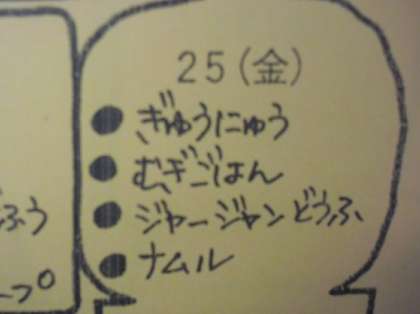 25(金)
●ぎゅうにゅう
●むぎごはん
●ジャージャンどうふ
●ナムル
ふう
プ